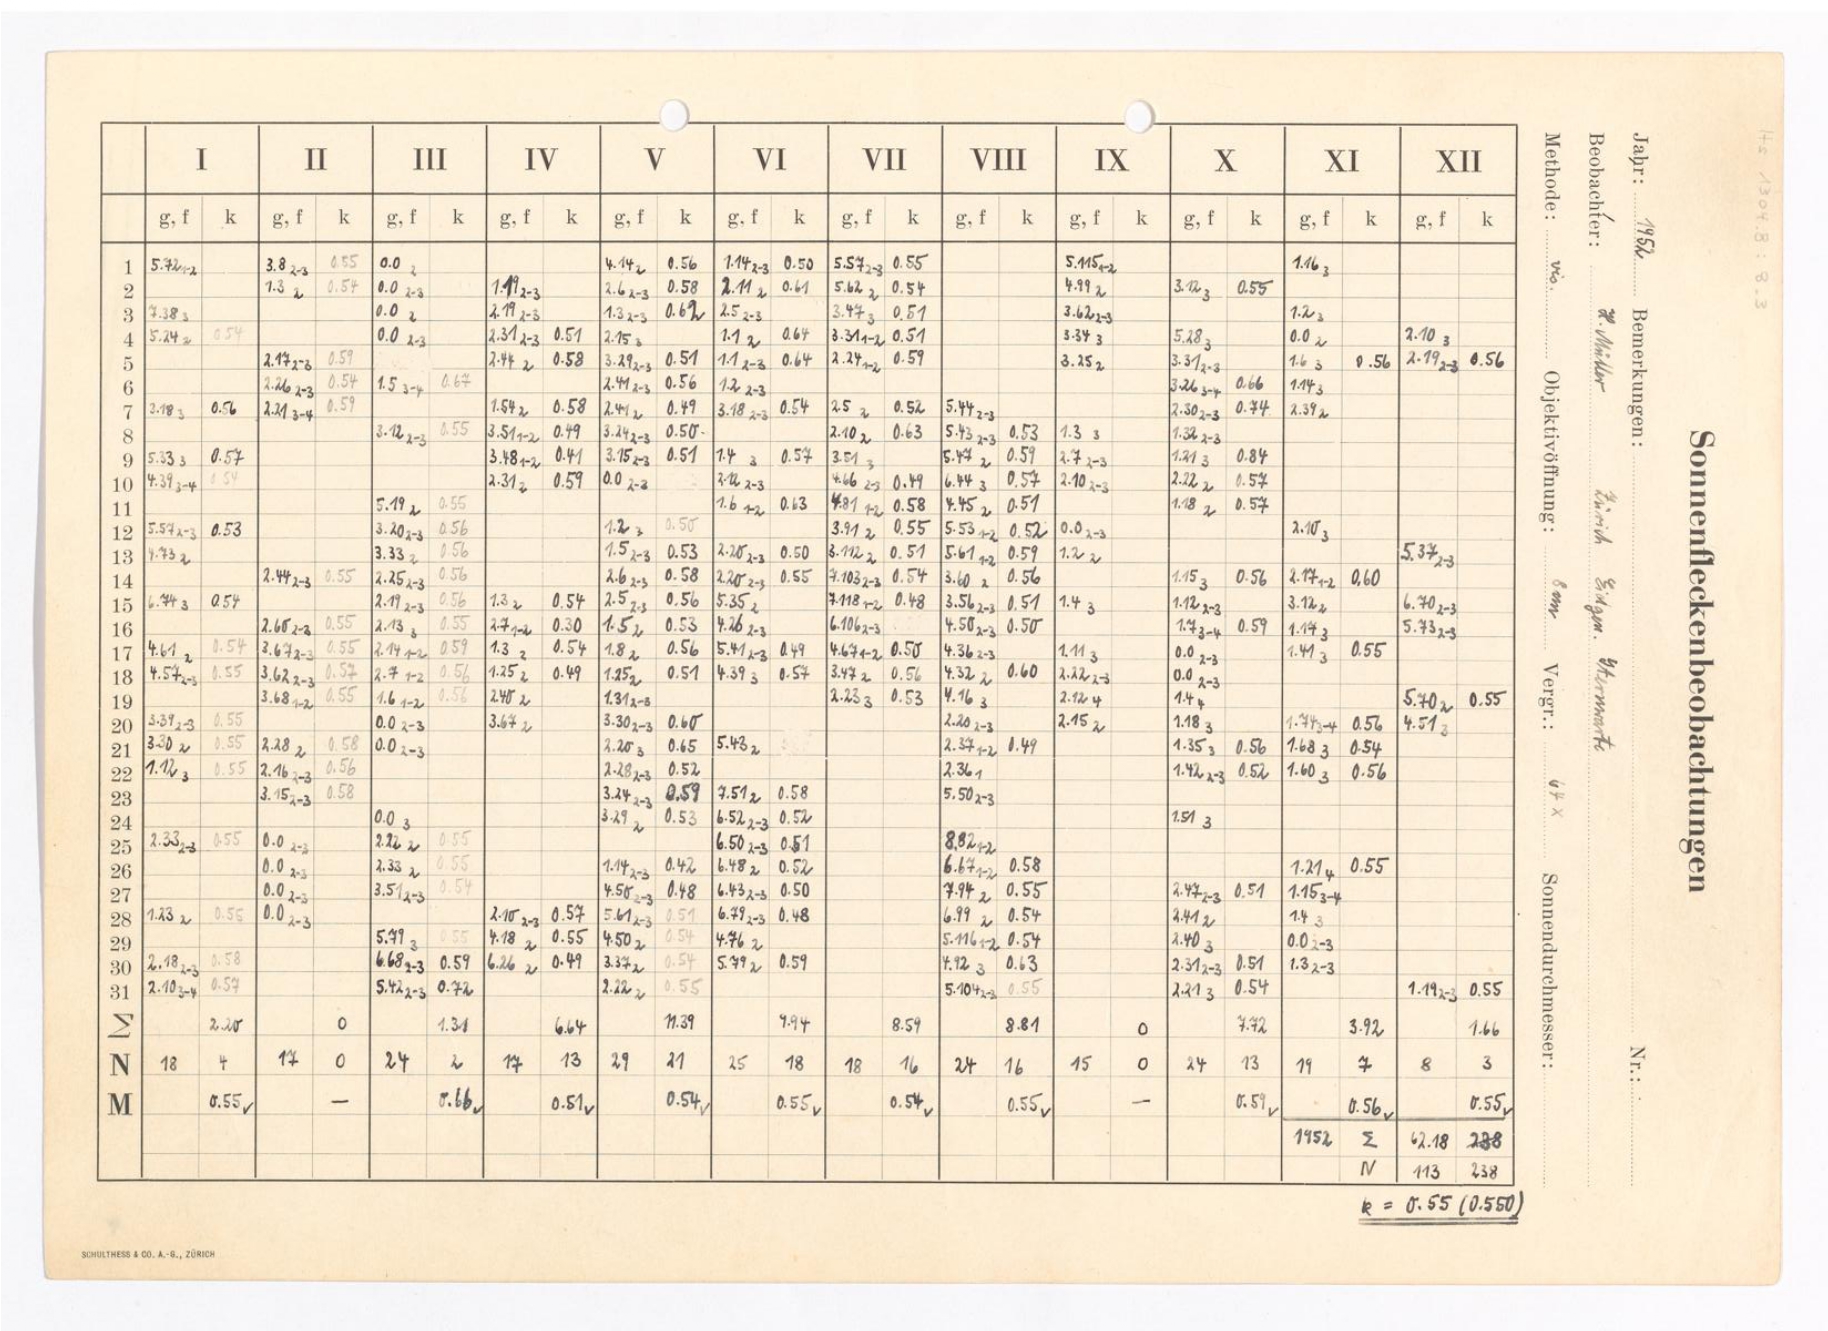 Sonnenfleckenbeobachtungen
Jahr: 1952 Bemerkungen: Nr.:
Beobachter: H. Müller Zürich Eidgn. Sternwarte
Methode: vis. Objektivöffnung: 8 cm Vergr.: 64 x Sonnendurchmesser:
I II III IV V VI VII VIII IX X XI XII
g, f k g, f k g, f k g, f k g, f k g, f k g, f k g, f k g, f k g, f k g, f k g, f k
1 5.72 1-2 3.8 2-3 0.55 0.0 2 4.14 2 0.56 1.14 2-3 0.50 5.57 2-3 0.55 5.115 1-2 1.16 3
2 1.3 2 0.54 0.0 2-3 1.19 2-3 2.6 2-3 0.58 2.11 2 0.61 5.62 2 0.54 4.99 2 3.12 3 0.55
3 7.38 3 0.0 2 2.19 2-3 1.3 2-3 0.62 2.5 2-3 3.47 3 0.51 3.62 2-3 1.2 3
4 5.24 2 0.54 0.0 2-3 2.31 2-3 0.51 2.15 3 1.1 2 0.64 3.31 1-2 0.51 3.34 3 5.28 3 0.0 2 2.10 3
5 2.17 2-3 0.59 2.44 2 0.58 3.29 2-3 0.51 1.1 2-3 0.64 2.24 1-2 0.59 3.25 2 3.31 2-3 1.6 3 0.56 2.19 2-3 0.56
6 2.26 2-3 0.54 1.5 3-4 0.67 2.41 2-3 0.56 1.2 2-3 3.26 3-4 0.66 1.14 3
7 3.18 3 0.56 2.21 3-4 0.59 1.54 2 0.58 2.41 2 0.49 3.18 2-3 0.54 2.5 2 0.52 5.44 2-3 2.30 2-3 0.74 2.39 2
8 3.12 2-3 0.55 3.51 1-2 0.49 3.24 2-3 0.50 2.10 2 0.63 5.43 2-3 0.53 1.3 3 1.32 2-3
9 5.33 3 0.57 3.48 1-2 0.41 3.15 2-3 0.51 1.4 3 0.57 3.51 3 5.47 2 0.59 2.7 2-3 1.21 3 0.84
10 4.39 3-4 0.54 2.31 2 0.59 0.0 2-3 2.12 2-3 4.66 2-3 0.49 6.44 3 0.57 2.10 2-3 2.22 2 0.57
11 5.19 2 0.55 1.6 1-2 0.63 4.81 1-2 0.58 4.45 2 0.51 1.18 2 0.57
12 5.57 2-3 0.53 3.20 2-3 0.56 1.2 3 0.50 3.91 2 0.55 5.53 1-2 0.52 0.0 2-3 2.10 3
13 4.73 2 3.33 2 0.56 1.5 2-3 0.53 2.20 2-3 0.50 3.112 2 0.51 5.61 1-2 0.59 1.2 2 5.37 2-3
14 2.44 2-3 0.55 2.25 2-3 0.56 2.6 2-3 0.58 2.20 2-3 0.55 7.103 2-3 0.54 3.60 2 0.56 1.15 3 0.56 2.17 1-2 0.60
15 6.74 3 0.54 2.19 2-3 0.56 1.3 2 0.54 2.5 2-3 0.56 5.35 2 7.118 1-2 0.48 3.56 2-3 0.51 1.4 3 1.12 2-3 3.12 2 6.70 2-3
16 2.60 2-3 0.55 2.13 3 0.55 2.7 1-2 0.30 1.5 2 0.53 4.26 2-3 6.106 2-3 4.50 2-3 0.50 1.7 3-4 0.59 1.17 3 5.73 2-3
17 4.61 2 0.54 3.67 2-3 0.55 2.14 1-2 0.59 1.3 2 0.54 1.8 2 0.56 5.41 2-3 0.49 4.67 1-2 0.50 4.36 2-3 1.11 3 0.0 2-3 1.41 3 0.55
18 4.57 2-3 0.55 3.62 2-3 0.57 2.7 1-2 0.56 1.25 2 0.49 1.25 2 0.51 4.39 3 0.57 3.47 2 0.56 4.32 2 0.60 2.22 2-3 0.0 2-3
19 3.68 1-2 0.55 1.6 1-2 0.56 2.40 2 1.31 2-3 2.23 3 0.53 4.16 3 2.12 4 1.4 4 5.70 2 0.55
20 3.39 2-3 0.55 0.0 2-3 3.67 2 3.30 2-3 0.60 2.20 2-3 2.15 2 1.18 3 1.74 3-4 0.56 4.51 3
21 3.30 2 0.55 2.28 2 0.58 0.0 2-3 2.20 3 0.65 5.43 2 2.37 1-2 0.49 1.35 3 0.56 1.68 3 0.54
22 1.12 3 0.55 2.16 2-3 0.56 2.28 2-3 0.52 2.36 1 1.42 2-3 0.52 1.60 3 0.56
23 3.15 2-3 0.58 3.24 2-3 0.59 7.51 2 0.58 5.50 2-3
24 0.0 3 3.29 2 0.53 6.52 2-3 0.52 1.51 3
25 2.33 2-3 0.55 0.0 2-3 2.22 2 0.55 6.50 2-3 0.51 8.82 1-2
26 0.0 2-3 2.33 2 0.55 1.14 2-3 0.42 6.48 2 0.52 6.67 1-2 0.58 1.21 4 0.55
27 0.0 2-3 3.51 2-3 0.54 4.50 2-3 0.48 6.43 2-3 0.50 7.94 2 0.55 2.47 2-3 0.51 1.15 3-4
28 1.23 2 0.56 0.0 2-3 2.10 2-3 0.57 5.61 2-3 0.51 6.79 2-3 0.48 6.99 2 0.54 2.41 2 1.4 3
29 5.79 3 0.55 4.18 2 0.55 4.50 2 0.54 4.76 2 5.116 1-2 0.54 2.40 3 0.0 2-3
30 2.18 2-3 0.58 6.68 2-3 0.59 6.26 2 0.49 3.37 2 0.54 5.79 2 0.59 4.92 3 0.63 2.31 2-3 0.51 1.3 2-3
31 2.10 3-4 0.57 5.42 2-3 0.72 2.22 2 0.55 5.104 2-3 0.55 2.21 3 0.54 1.19 2-3 0.55
Σ 2.20 0 1.31 6.64 11.39 9.94 8.59 8.81 0 7.72 3.92 1.66
N 18 4 17 0 24 2 17 13 29 21 25 18 18 16 24 16 15 0 24 13 19 7 8 3
M 0.55 — 0.66 0.51 0.54 0.55 0.54 0.55 — 0.59 0.56 0.55
1952 Σ 62.18 238
N 113 238
k = 0.55 (0.550)
SCHULTHESS & CO. A.-G., ZÜRICH
Hs 1304.8 : 8.3